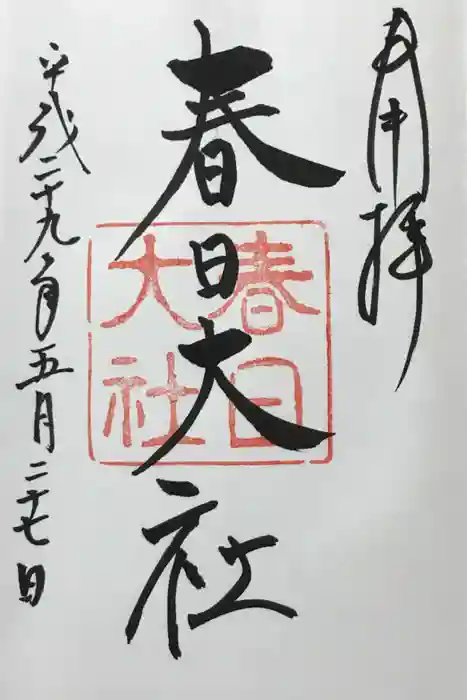 奉拝
春日大社
春日大社
平成二十九年五月二十七日